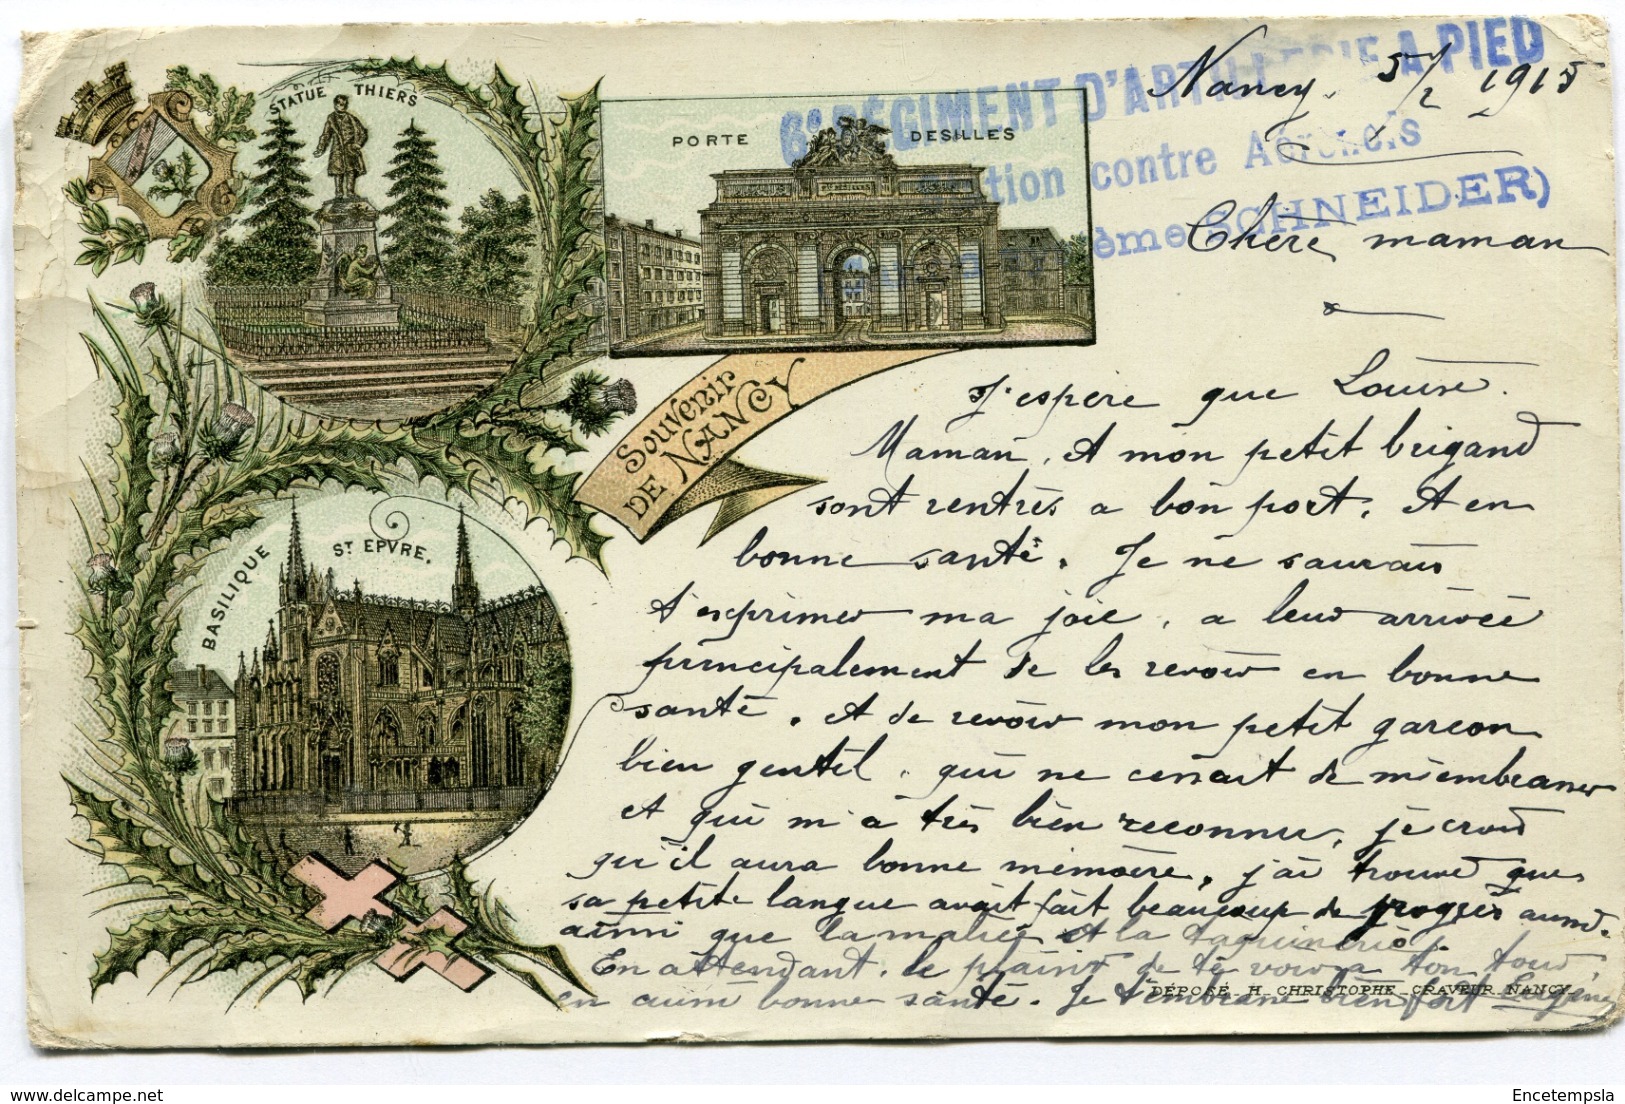 STATUE THIERS
PORTE DESILLES
6e RÉGIMENT D'ARTILLERIE A PIED
contre Aéronefs
ème SCHNEIDER)
Nancy. 5/2 1915
Chère maman
Souvenir
DE NANCY
BASILIQUE ST EPVRE.
J'espère que Louise.
Maman, et mon petit brigand
sont rentrés a bon port, et en
bonne santé. Je ne saurais
t'exprimer ma joie, a leur arrivée
principalement de les revoir en bonne
santé. et de revoir mon petit garcon
bien gentil, qui ne cessait de m'embrasser
et qui m'a très bien reconnu, je crois
qu'il aura bonne mémoire, j'ai trouvé que
sa petite langue avait fait beaucoup de progrès aussi.
ainsi que la malice et la taquinerie.
En attendant, le plaisir de te voir a ton tour,
en aussi bonne santé. Je t'embrasse bien fort Eugène
DÉPOSÉ H. CHRISTOPHE GRAVEUR NANCY
Encetempsla